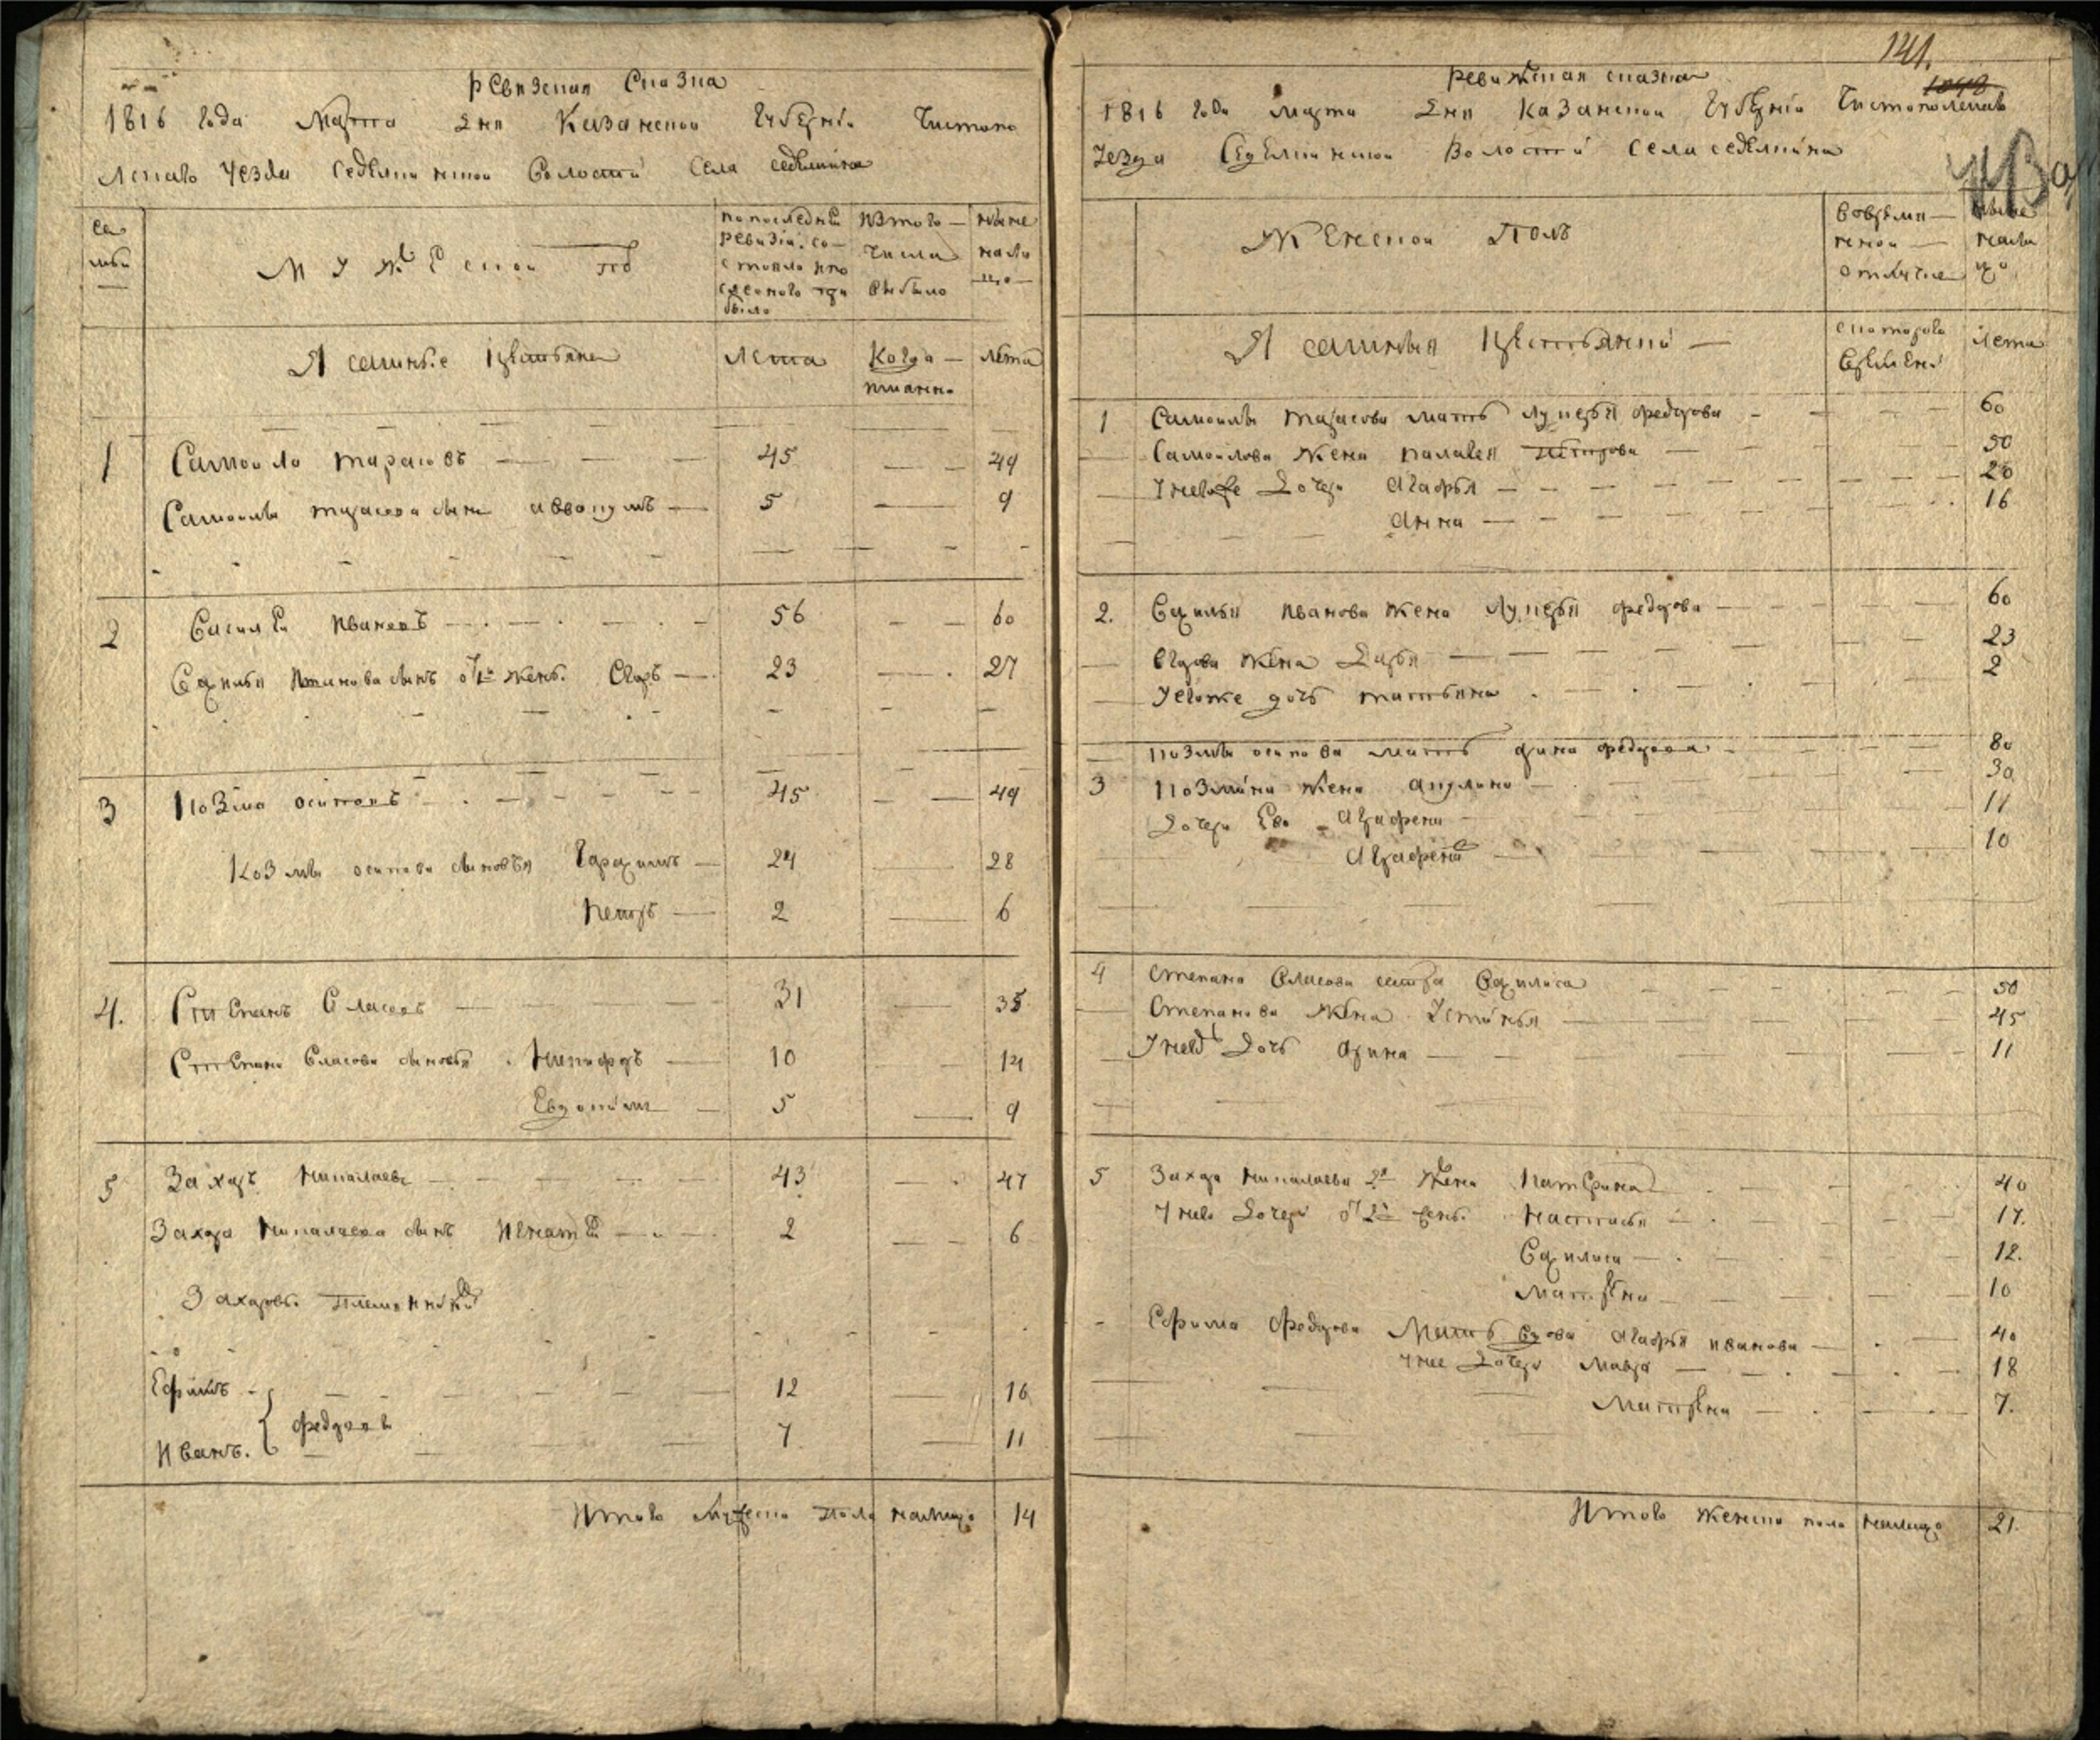 Ревизская Сказка
1816 года Марта дня Казанской Губерніи Чистопо
льскаго уезда Седелкинской Волости Села Седелкина
Се
мьи
Мужеской пол
по последней ревизіи состояло и после оного при было
Изтого числа выбыло
ныне налицо
Ясашные крестьяне
Лета
Когда имянно
лета
1 Самойло Тарасовъ 45 49
Самойлы Тарасова сынъ Аввокумъ 5 9
2 Василей Ивановъ 56 60
Василья Иванова сынъ от 1й жены Егоръ 23 27
3 Козма Осиповъ 45 49
Козмы Осипова сыновья Герасимъ 24 28
Петръ 2 6
4. Степанъ Власовъ 31 35
Степана Власова сыновья Никифоръ 10 14
Евдокимъ 5 9
5 Захаръ Николаевъ 43 47
Захара Николаева сынъ Игнатей 2 6
Захаровы племянники
Ефимъ 12 16
Федоровы
Иванъ 7 11
Итого мужеска пола налицо 14
141.
1048
Ревижская сказка
1816 года Марта дня Казанской Губерніи Чистопольскаго
уезда Седелкинской Волости Села Седелкина
Женской Полъ
во временной отлучке
ныне налицо
Ясашныя крестьянки
с котораго времени
лета
1 Самойлы Тарасова мать Лукерья Федорова 60
Самойлова жена Палагея Петрова 50
У него же дочери Агафья 20
Анна 16
2. Василья Иванова жена Лукерья Федорова 60
Егорова жена Дарья 23
У Егорже дочь Татьяна 2
Козмы Осипова мать Арина Федорова 80
3 Козмина жена Акулина 30
Дочери Ево Аграфена 11
Аграфена 10
4 Степана Власова сестра Василиса 50
Степанова жена Устинья 45
У него дочь Арина 11
5 Захара Николаева 2я жена Катерина 40
У него дочери от 2й жены Настасья 17.
Василиса 12.
Матрена 10
Ефима Федорова мать вдова Агафья Иванова 40
У нее дочери Мавра 18
Матрена 7.
Итого женска пола налицо 21.